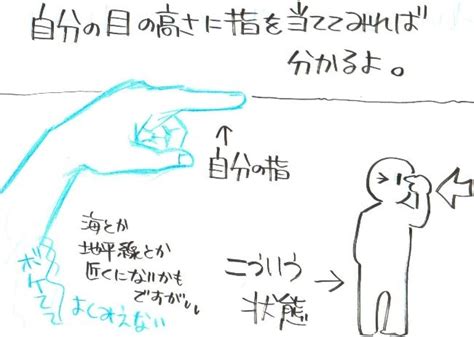 自分の目の高さに指を当ててみれば
分かるよ。
↑
自分の指
海とか
地平線とか
近くにないかも
ですがい
ボケてて
よくみえない
こういう
状態